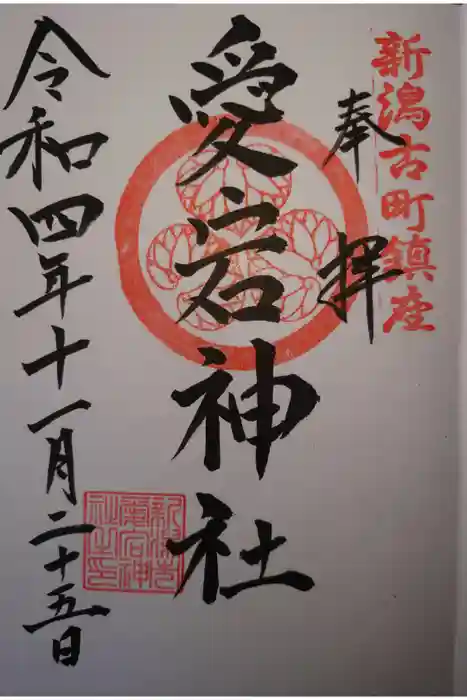 新潟古町鎮座
奉拝
愛宕神社
令和四年十一月二十五日